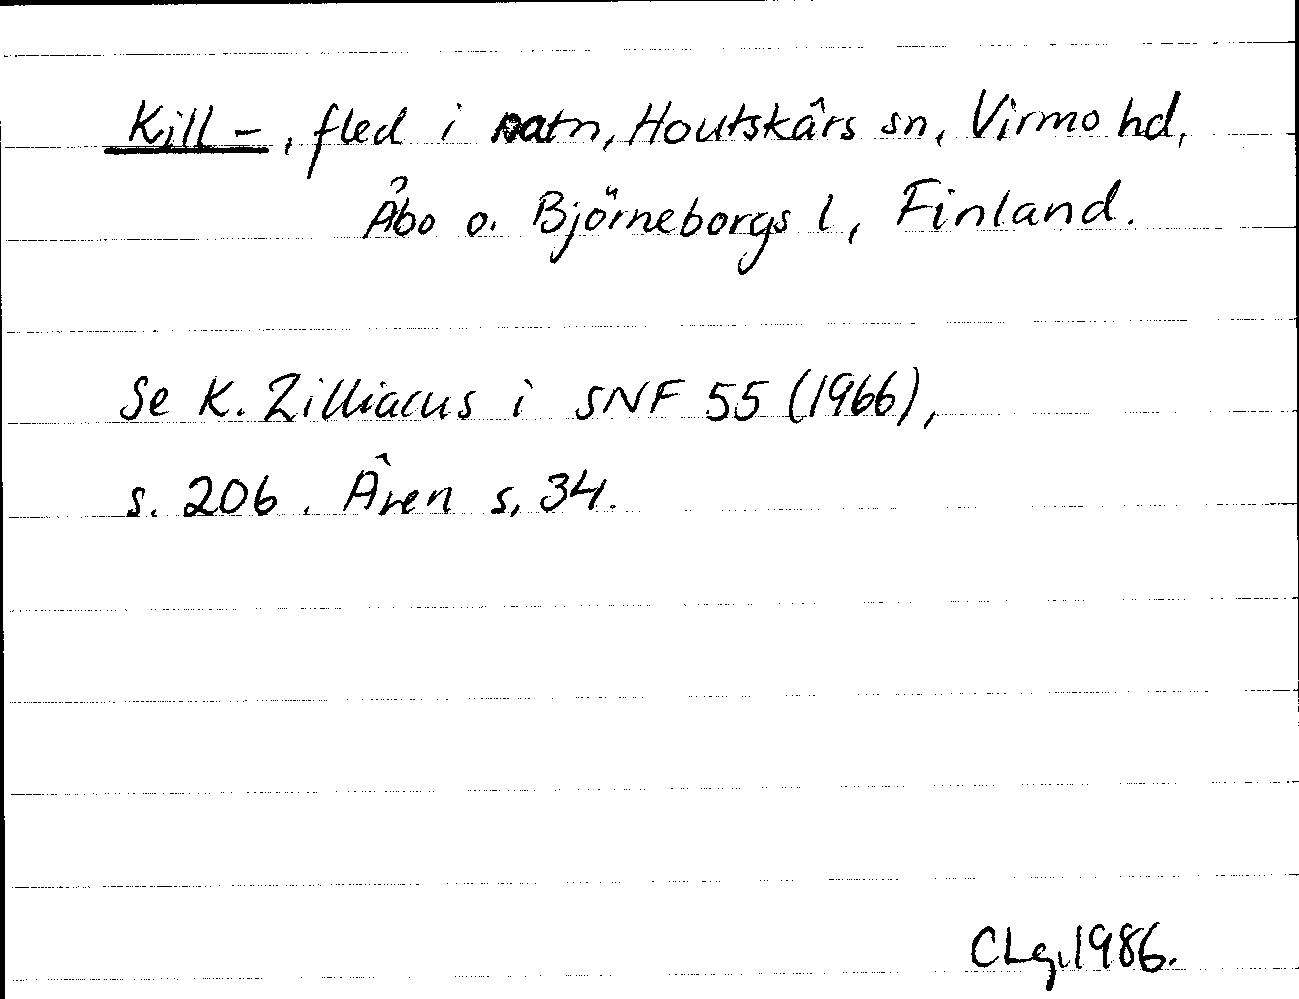 Kill-, fled i natn, Houtskärs sn, Virmo hd,
Åbo o. Björneborgs l, Finland.
Se K. Zilliacus i SNF 55 (1966),
s. 206. Åren s. 34.
CLg. 1986.